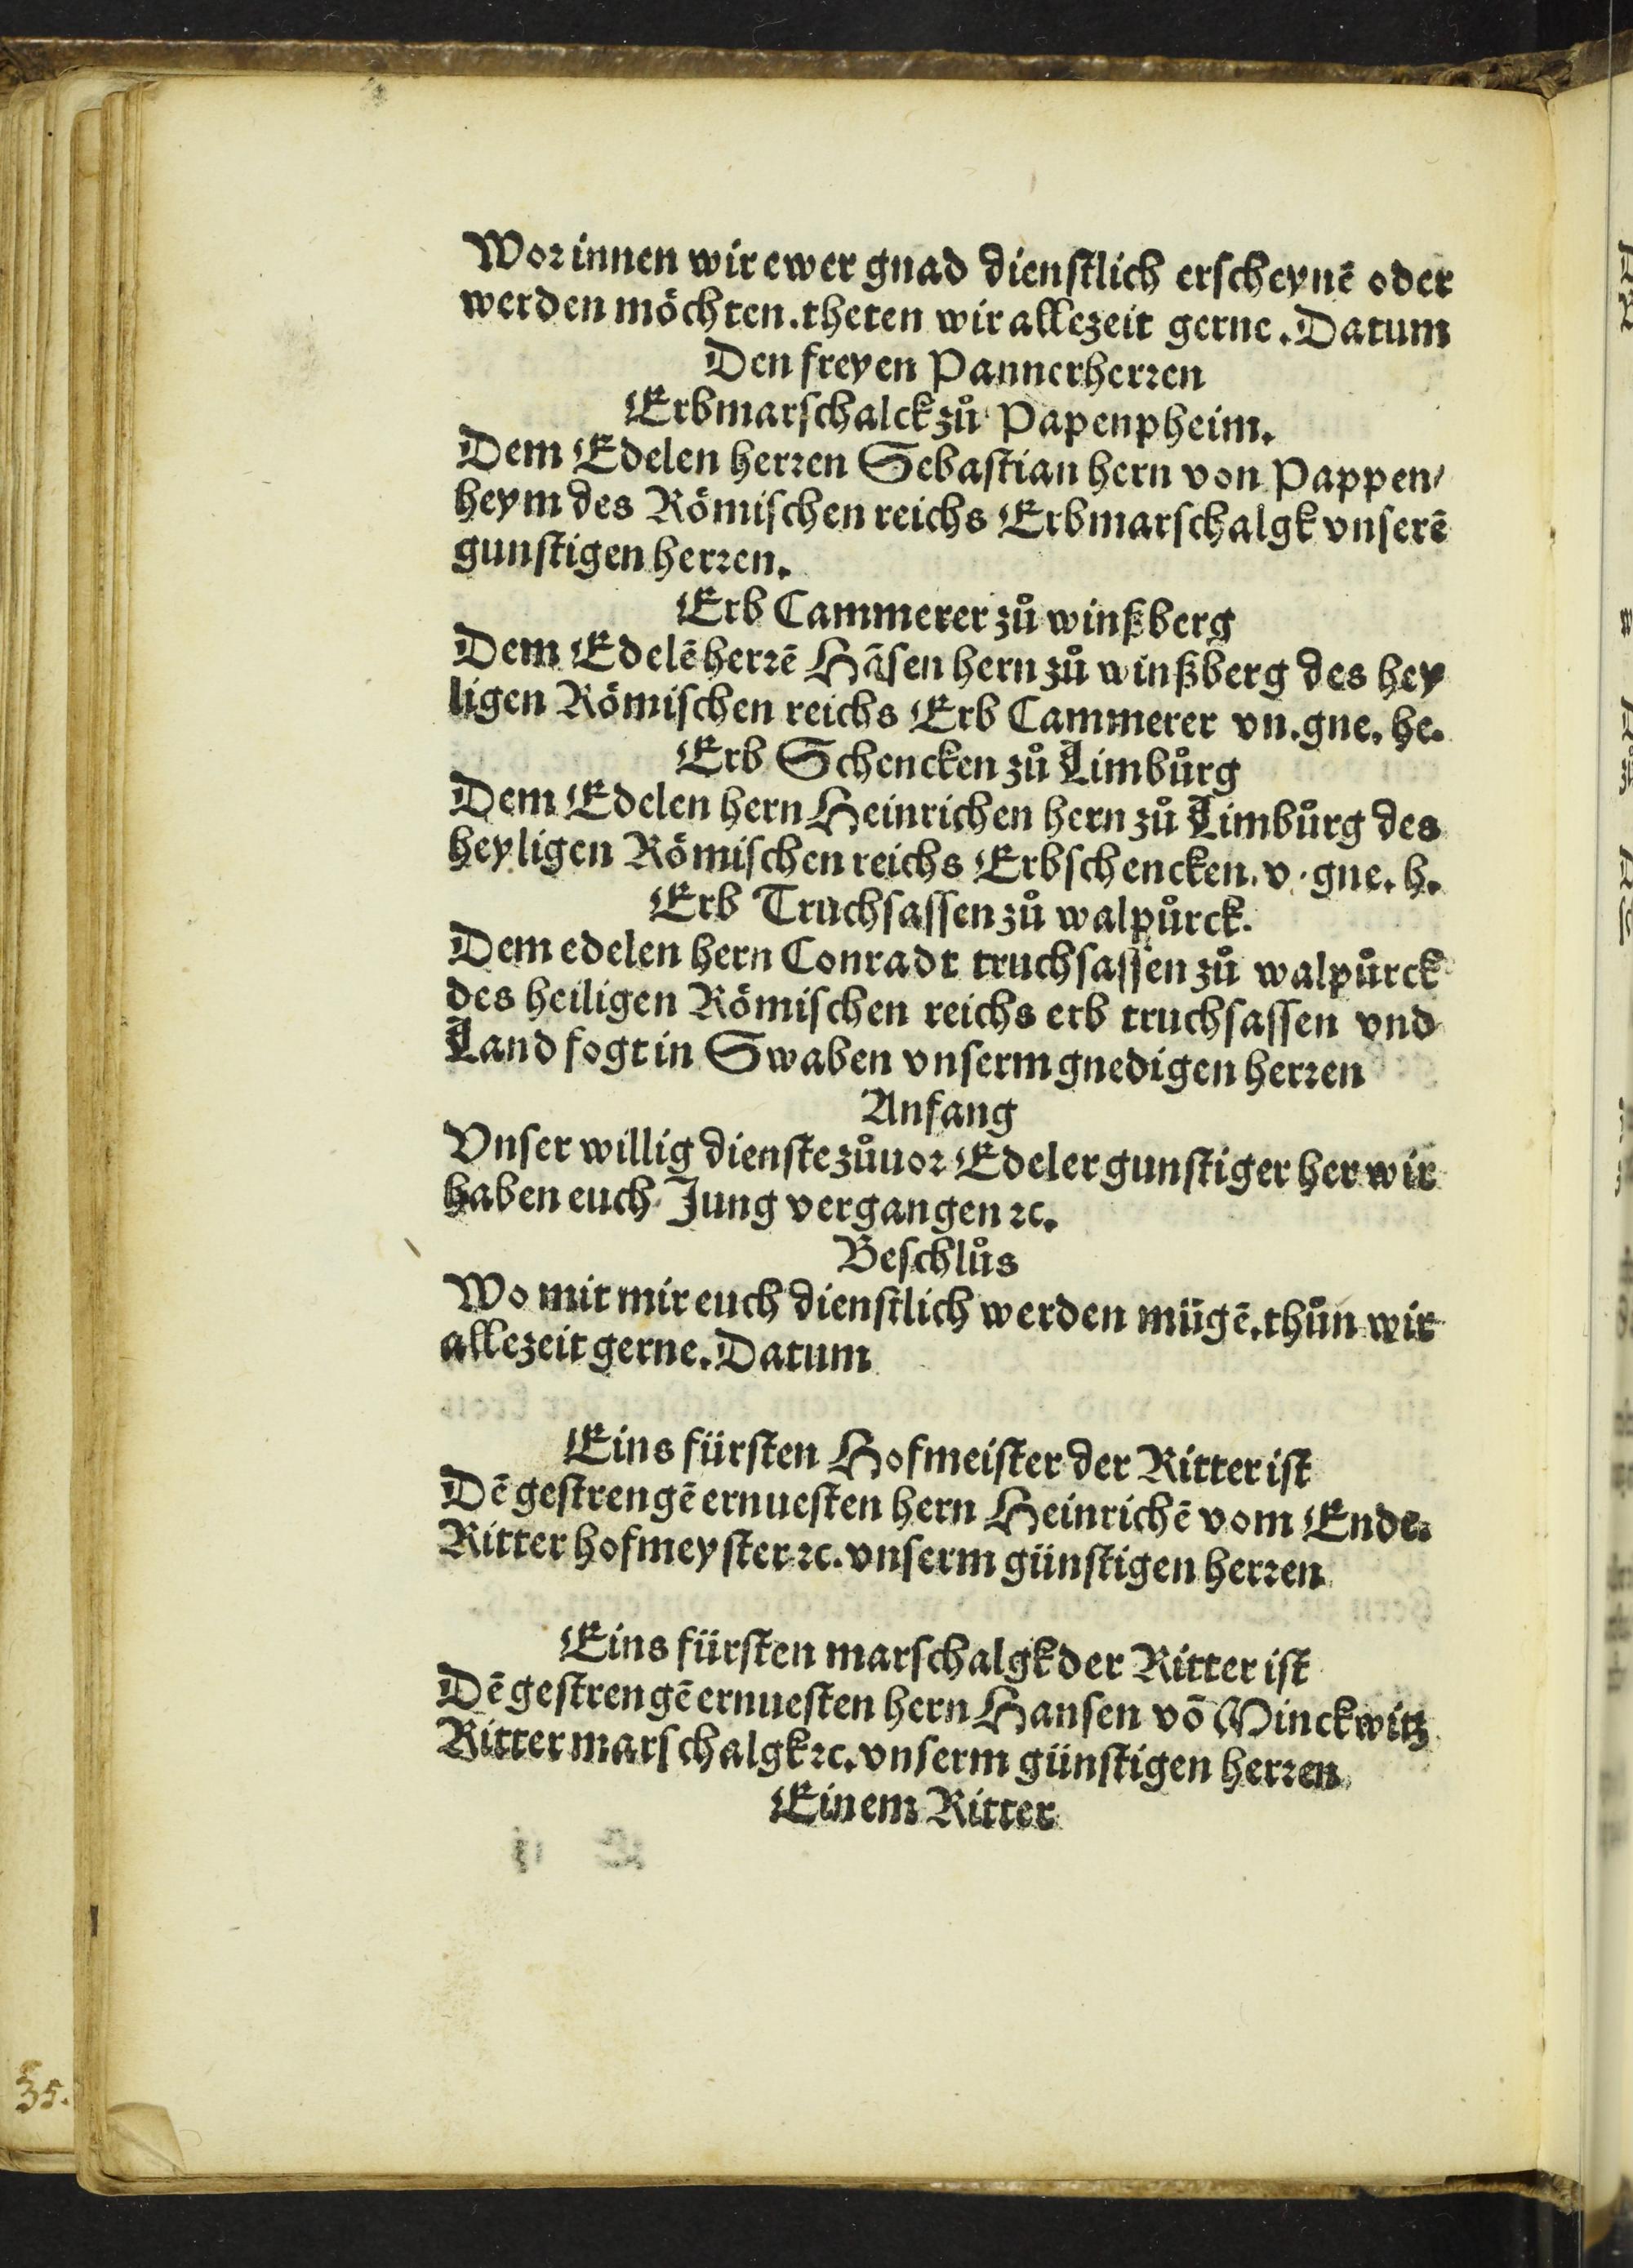 Worinnen wir ewer gnad dienstlich erscheynē oder
werden möchten. theten wir allezeit gerne. Datum
Den freyen Pannerherren
Erbmarschalck zů Papenpheim.
Dem Edelen herren Sebastian hern von Pappen/
heym des Römischen reichs Erbmarschalgk vnserē
gunstigen herren.
Erb Cammerer zů winßberg
Dem Edelē herrē Hāsen hern zů winßberg des hey
ligen Römischen reichs Erb Cammerer vn. gne. he.
Erb Schencken zů Limbůrg
Dem Edelen hern Heinrichen hern zů Limbůrg des
heyligen Römischen reichs Erbschencken. v. gne. h.
Erb Truchsassen zů walpůrck.
Dem edelen hern Conradt truchsassen zů walpůrck
des heiligen Römischen reichs erb truchsassen vnd
Land fogt in Swaben vnserm gnedigen herren
Anfang
Vnser willig dienste zůuor Edeler gunstiger her wir
haben euch Jung vergangen ꝛc.
Beschlůs
Wo mit mir euch dienstlich werden mügē. thůn wir
allezeit gerne. Datum
Eins fürsten Hofmeister der Ritter ist
Dē gestrengē ernuesten hern Heinrichē vom Ende.
Ritter hofmeyster ꝛc. vnserm günstigen herren
Eins fürsten marschalgk der Ritter ist
Dē gestrengē ernuesten hern Hansen vō Minckwitz
Ritter marschalgk ꝛc. vnserm günstigen herren
Einem Ritter
35.